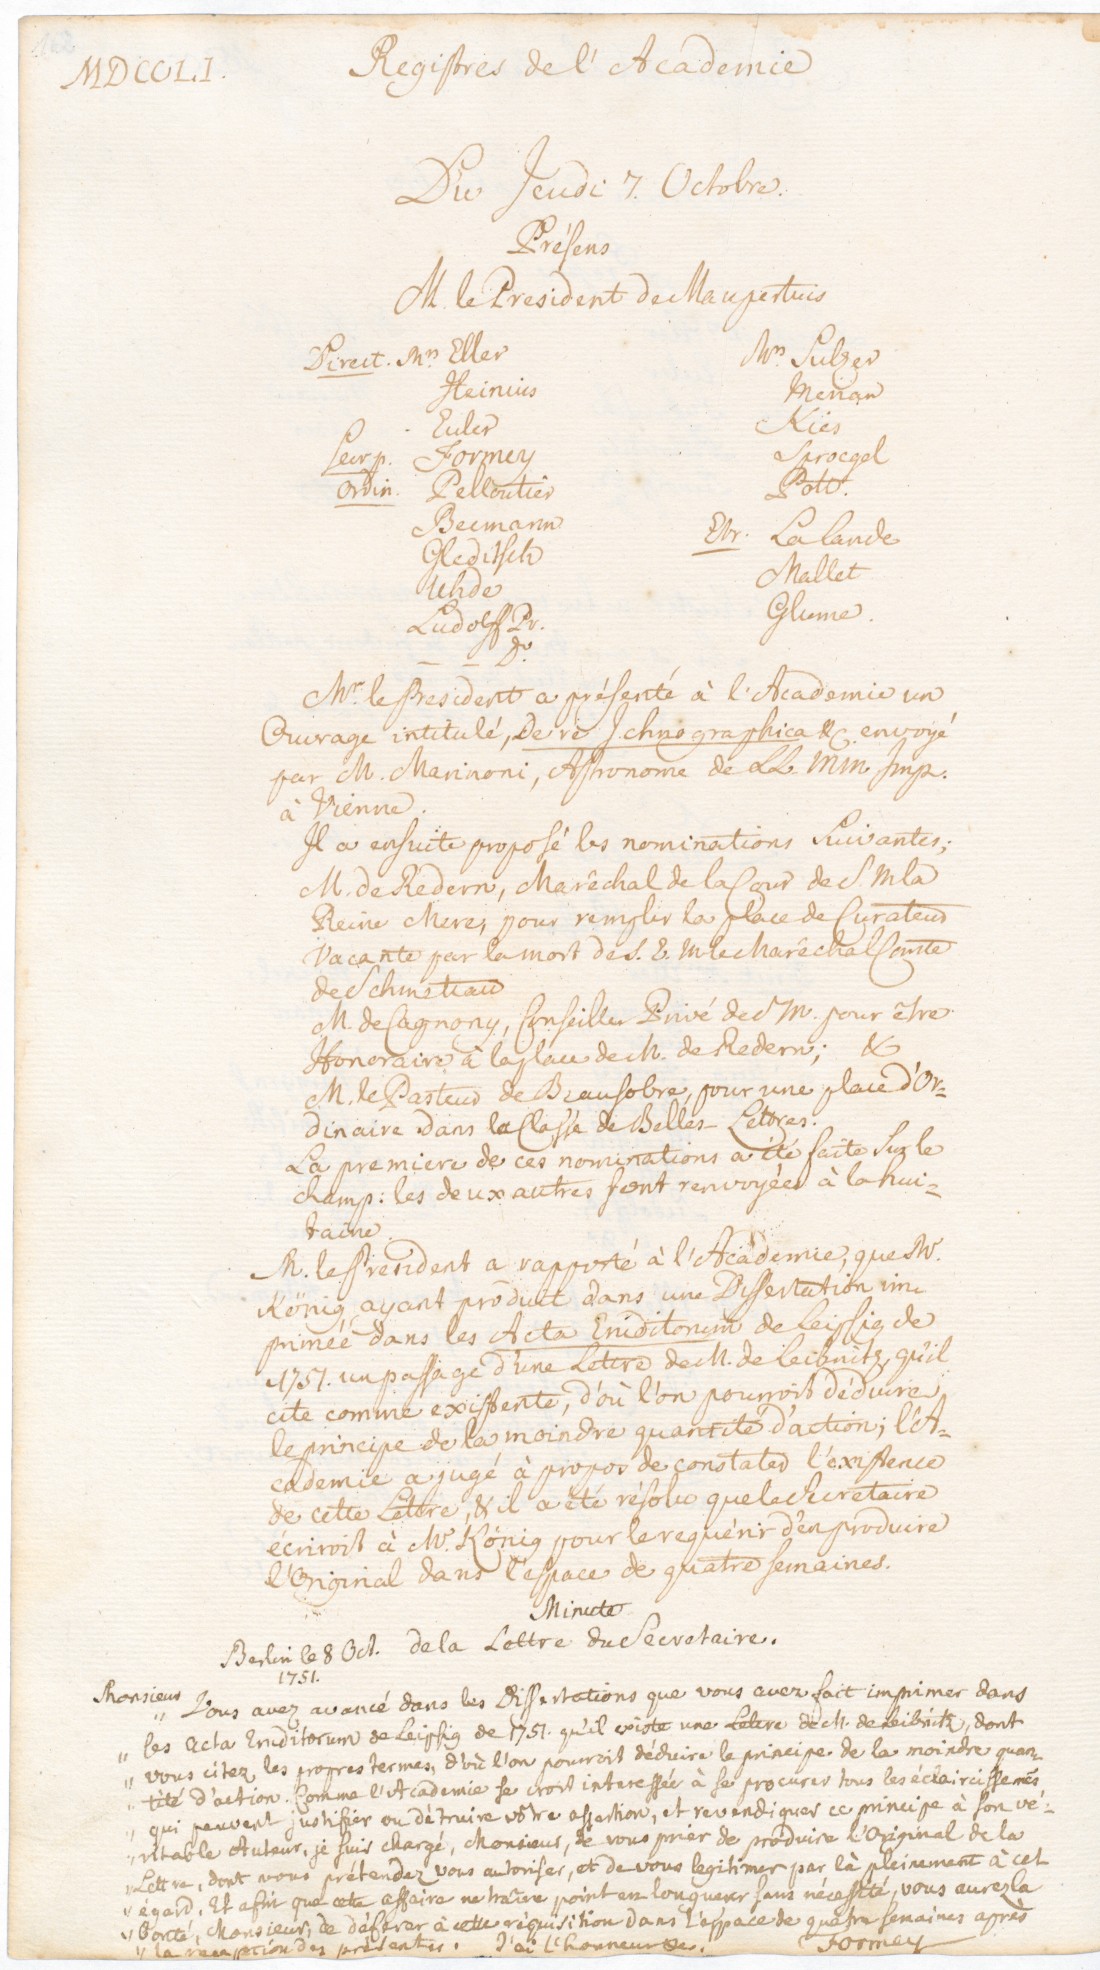 MDCCLI.
Registres de l'Academie
Du Jeudi 7. Octobre.
Présens
M. le President de Maupertuis
Direct. Mrs Eller
Heinius
Euler
Secr. p. Formey
Ordin. Pelloutier
Becmann
Gleditsch
Uhde
Ludolff Pr.
_ _ Dr.
Mrs. Sulzer
Merian
Kies
Sproegel
Pott.
Etr. La Lande
Mallet
Glume.
Mr. le President a présenté à l'Academie un
Ouvrage intitulé, De re Ichnographica &c. envoyé
par M. Marinoni, Astronome de LL. MM. Imp.
à Vienne.
Il a ensuite proposé les nominations suivantes;
M. de Redern, Maréchal de la Cour de S. M. la
Reine Mere, pour remplir la place de Curateur
vacante par la mort de S. E. M. le Maréchal Comte
de Schmettau
M. de Cagnony, Conseiller Privé de S. M. pour être
Honoraire à la place de M. de Redern; &
M. le Pasteur de Beausobre, pour une place d'Or-
dinaire dans la Classe de Belles-Lettres.
La premiere de ces nominations a été faite sur le
champ: les deux autres sont renvoyées à la hui-
taine.
M. le President a rapporté à l'Académie, que M.
König ayant produit dans une Dissertation im-
primée dans les Acta Eruditorum de Leipsig de
1751. un passage d'une Lettre de M. de Leibnitz, qu'il
cite comme existente, d'où l'on pourroit déduire
le principe de la moindre quantité d'action; l'A-
cademie a jugé à propos de constater l'existence
de cette Lettre, & il a été résolu que le Secretaire
écriroit à M. König pour le requérir d'en produire
l'Original dans l'espace de quatre semaines.
Minute
Berlin le 8 Oct. de la Lettre du Secretaire.
1751.
Monsieur
„ Vous avez avancé dans les Dissertations que vous avez fait imprimer dans
„ les Acta Eruditorum de Leipsig de 1751. qu'il existe une Lettre de M. de Leibnitz, dont
„ vous citez les propres termes, d'où l'on pourroit déduire le principe de la moindre quan-
„ tité d'action. Comme l'Academie se croit interessée à se procurer tous les éclaircissemens
„ qui peuvent justifier ou détruire vôtre assertion, et revendiquer ce principe à son vé-
„ ritable Auteur, je suis chargé, Monsieur, de vous prier de produire l'Original de la
„ Lettre, dont vous prétendez vous autoriser, et de vous legitimer par là pleinement à cet
„ égard. Et afin que cete affaire ne traîne point en longueur sans nécessité, vous aurez la
„ bonté, Monsieur, de déférer à cette réquisition dans l'espace de quatre semaines après
„ la reception des présentes. J'ai l'honneur &c. Formey